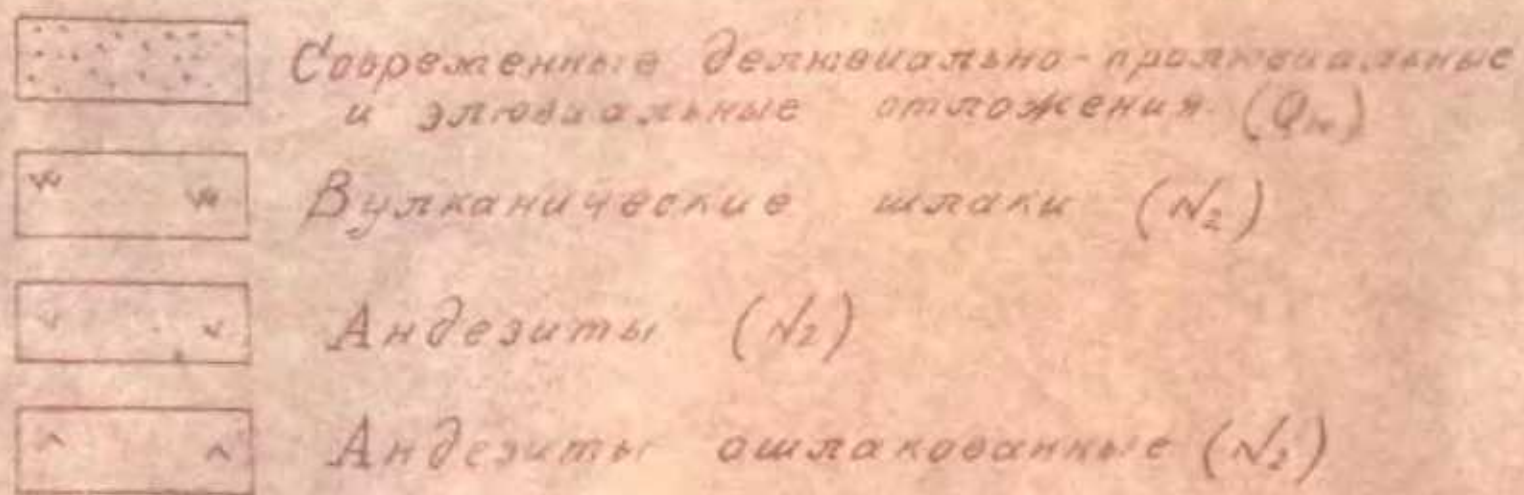 Современные делювиально-пролювиальные
и элювиальные отложения (Q_IV)
Вулканические шлаки (N₂)
Андезиты (N₂)
Андезиты ошлакованные (N₂)